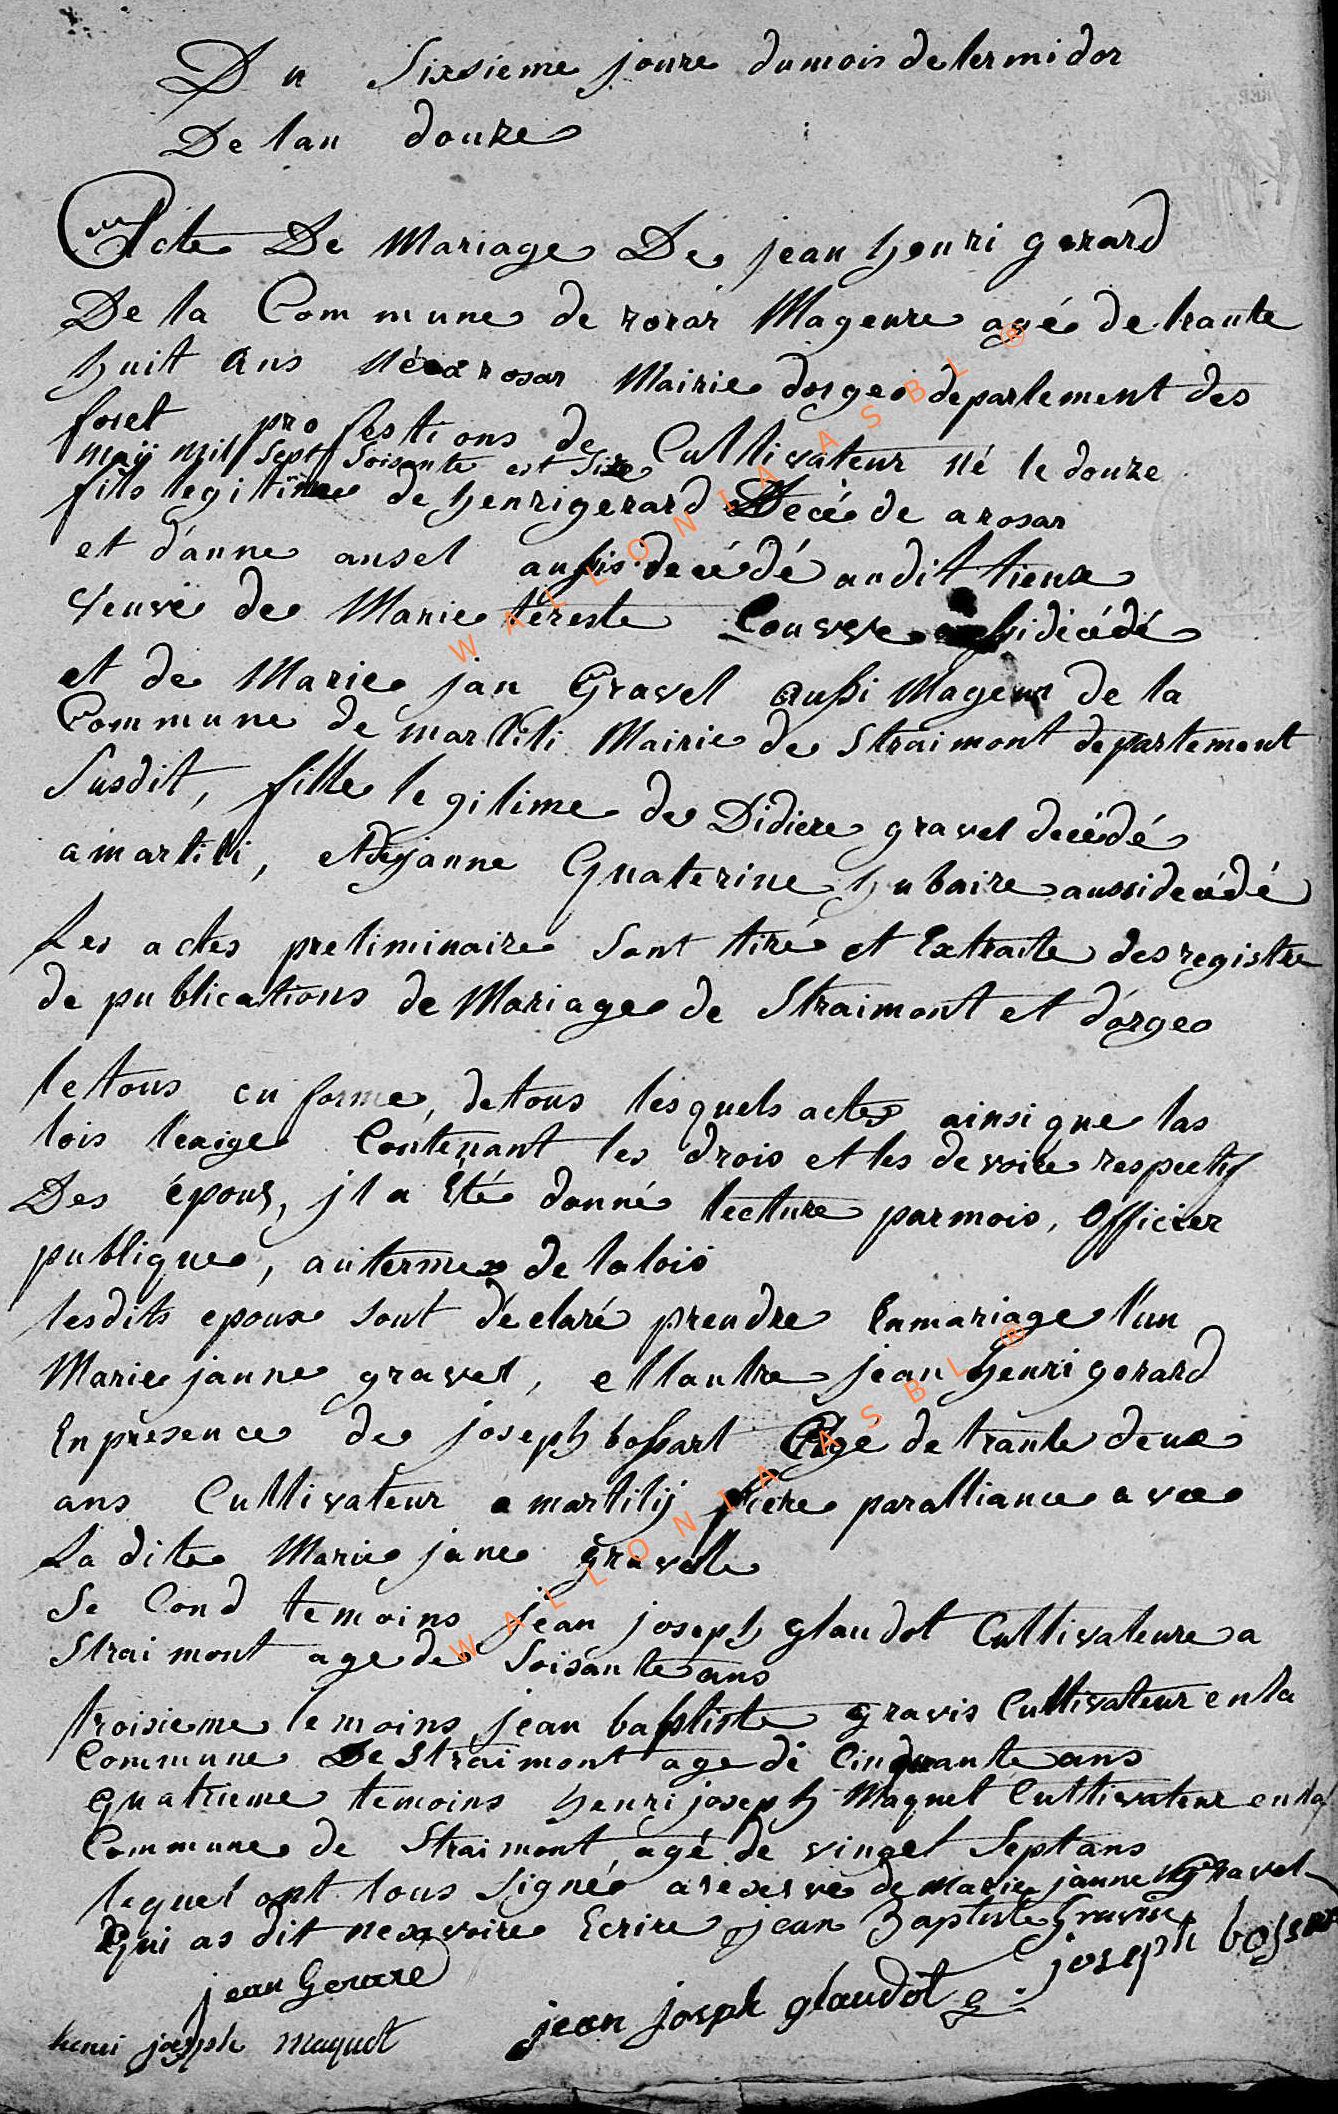 Du Sixsieme joure dumois de termidor
De lan douze
Acte De Mariage De jean henri gerard
De la Commune de rorar Mageure agé de trante
huit ans né a rosar Mairie dorgeo departement des
foret profestions de Cultivateur né le douze
maÿ mil Sept Soisente est Size
fils legitime de henri gerard Decéde a rosar
et d'anne ansel aussis decédé audit lieux
veuve de Marie tereste Louvve aussi dicédé
et de Marie jan Gravel aussi Mageur de la
Commune de martiti Mairie de Straimont departement
Susdit, fille legitime de Didiere gravel decédé
a martiti, et De janne Quaterine hubaire aussi decédé
Les actes preliminaire Sont tiré et Extraite des registre
de publications de Mariage de Straimont et d'orgeo
le tous en forme, de tous lesquels actes ainsi que las
lois l'exige Contenant les drois et les devoire respectif
Des épous, jl a Eté donné lecture par mois, Officier
publique, au termes de la lois
lesdits epoux Sont déclaré prendre En mariage l'un
Marie janne gravel, et lautre jean henri gerard
En présence de joseph bossart Agé de trante deux
ans Cultivateur a martilÿ frere par alliance avec
La dite Marie jane gravelle
Se Cond temoins jean joseph glaudot Cultivateure a
Straimont age de Soisante ans
troisieme temoins jean baptiste gravis Cultivateur en la
Commune De Straimont age de Cinquante ans
quatrieme temoins henri joseph Maquet Cultivateur en la
Commune de Straimont, agé de vinget Sept ans
lequel ont tous Signé a reserve de Marie janne Gravel
Qui as dit ne savoire Ecrire jean Baptiste Gravis
joseph bossart
jean Gerard
jean joseph glaudot
henri joseph maquet
WALLONIA ASBL ®
WALLONIA ASBL ®